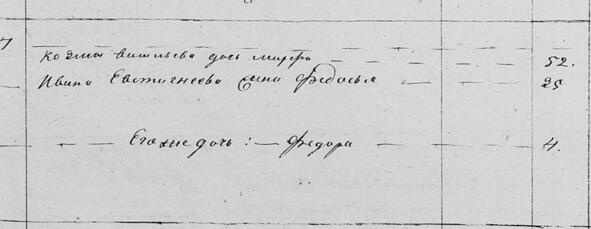 Козмы васильева дочь марфа 52.
Ивана Евстигнеева жена Федосья 25
Его же дочь: Федора 4.